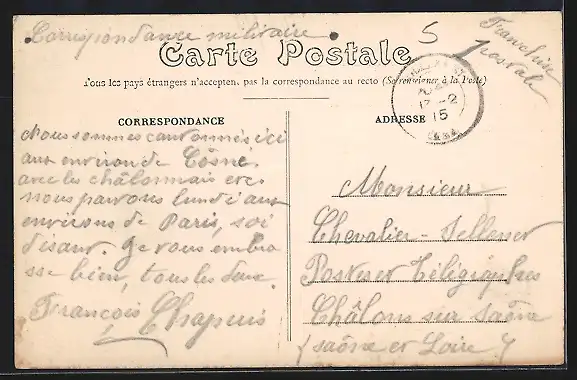 Correspondance militaire
5
Franchise
postale
Carte Postale
Tous les pays étrangers n'acceptent pas la correspondance au recto (Se renseigner à la Poste)
CORRESPONDANCE
Nous sommes cantonnés ici
aux environ de Cosne
avec les châlonnais etc
nous partons lundi aux
environs de Paris, soi
disant. Je vous embra
sse bien, tous les deux
François Chapuis
ADRESSE
15
Monsieur
Chevalier-
Postes et Télégraphes
Châlons sur Saône
(Saône et Loire)